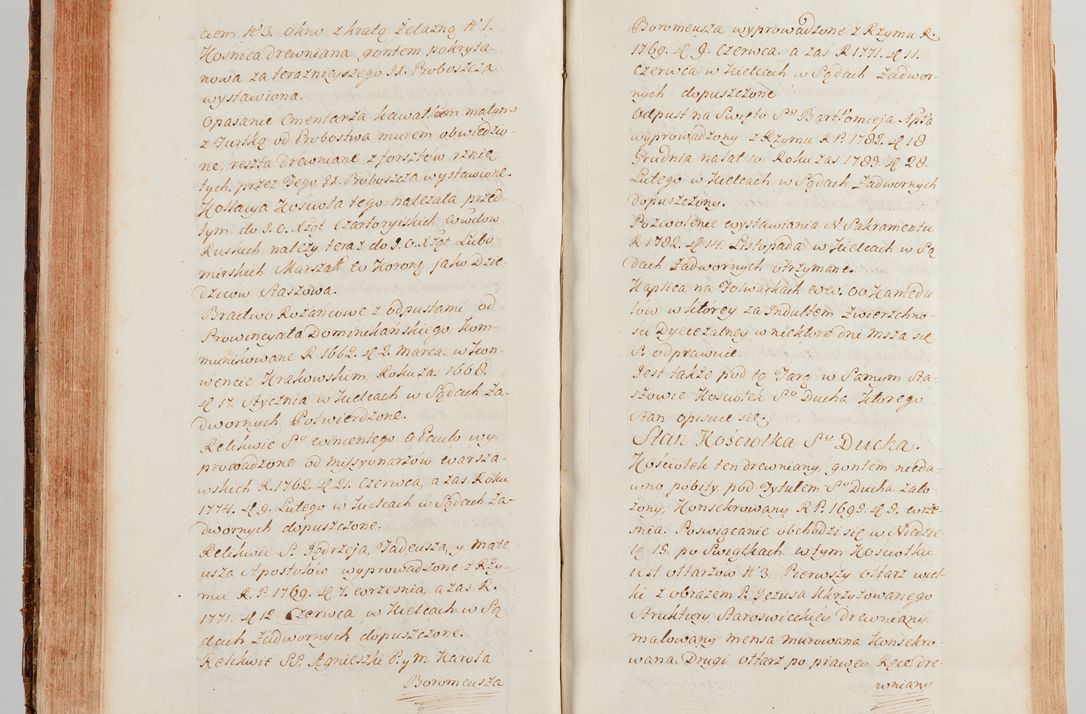 ciem N 3. okno z kratą żelazną N 1.
Kośnica drewniana gontem pokryta
nowa za teraznieyszego JX. Proboszcza
wystawiona.
Opasanie Cmentarza kawałkiem małym
z Furtką od Probostwa murem obwiedzio
ne, reszta drewniane z forsztów rznię
tych, przez Tego JX. Proboszcza wystawione.
Kollacya Kościoła tego należała przed
tym do J. O. Xżąt Czartoryiskich Wwdow
Ruskich należy teraz do J. O. Xżąt Lubo
mirskich Marszał: W Korony jako Dzie
dziców Staszowa.
Bractwo Rożancowe z odpustami od
Prowincyała Dominikańskiego kom
munikowane R. 1662. d 2. Marca. w Kon
wencie Krakowskim, Roku zas 1668.
d 17. Stycznia w Kielcach w Sądach Za
dwornych Potwierdzone.
Relikwie So Wincentego a Paulo wy
prowadzone od Missyonarzów Warsza
wskich R. 1762. d 21. Czerwca, a zas Roku
1774. d 9. Lutego w Kielcach w Sądach Za
dwornych dopuszczone.
Relikwie S. Jędrzeja, Tadeusza, y Mate
usza Apostołów wyprowadzone z Rzy
mu R. P. 1769. d 7. Września, a zas R.
1771. d 12 Czerwca w Kielcach w Są
dach Zadwornych dopuszczone.
Relikwie SS. Agnieszki P. y M. Karola
Boromeusza
Boromeusza wyprowadzone z Rzymu R.
1769. d 9. Czerwca. a zaś R. 1771. d 11.
Czerwca w Kielcach w Sądach Zadwor
nych dopuszczone
Odpust na Swięto So Bartłomieja Apła
wyprowadzony z Rzymu R. P. 1782. d 18.
Grudnia na lat 10 Roku zas 1783. d 28.
Lutego w Kielcach w Sądach Zadwornych
dopuszczony.
Pozwolenie wystawienia N. Sakramentu
R. 1782. d 14. Listopada w Kielcach w Są
dach Zadwornych otrzymane.
Kaplica na Folwarkach WW. OO Kamedu
łow w ktorey za Indultem Zwierzchno
sci Dyecezalney w niektore dni Msza się
S. odprawuie.
Jest także pod tę Parą w Samym Sta
szowie Kosciołek So Ducha ktorego
stan opisuie się.
Stan Kościołka So Ducha.
Kościołek ten drewniany, gontem nieda
wno pobity, pod Tytułem So Ducha zało
żony, Konsekrowany R. P. 1695. d 5. Wrze
snia. Poswięcanie obchodzi się w Niedzie
lę 15. po Swiątkach. w tym Kosciołku
iest ołtarzow N 3. Pierwszy ołtarz wiel
ki z obrazem P. Jezusa Ukrzyżowanego
Struktury Staroswieckiey drewniany
malowany mensa murowana Konsekro
wana. Drugi ołtarz po prawey Ręce dre
wniany